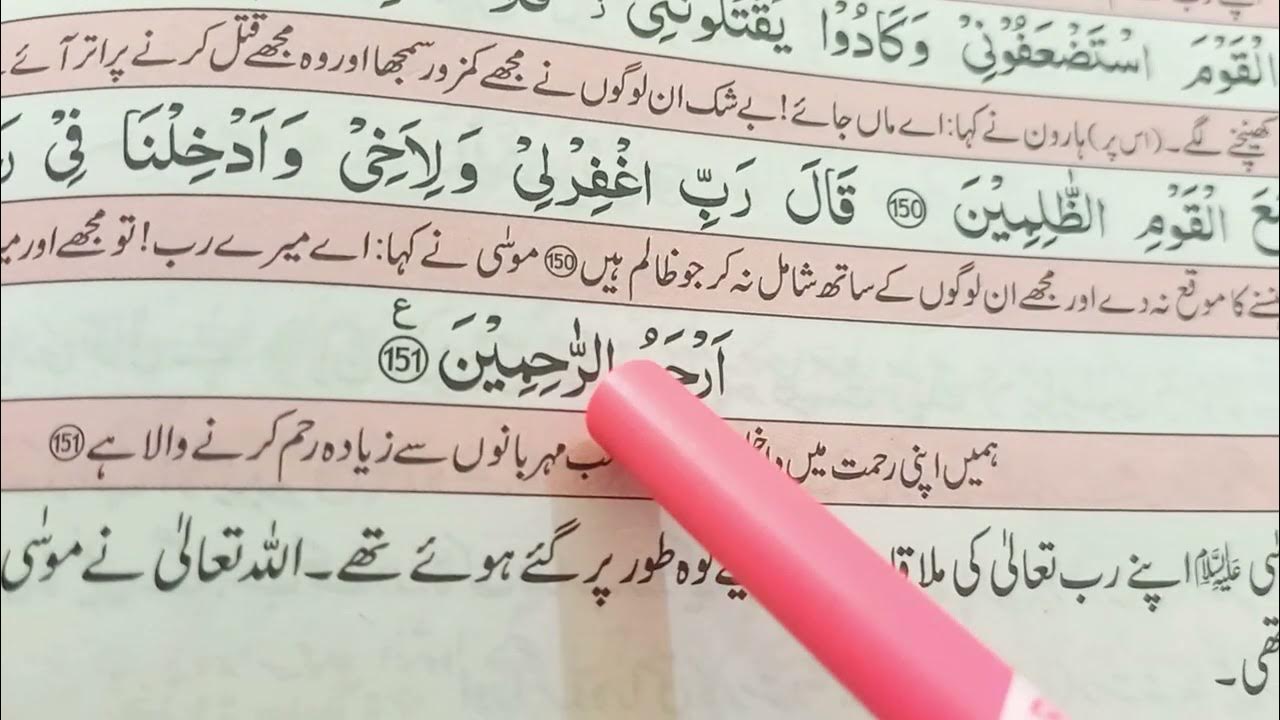 الْقَوْمَ اسْتَضْعَفُوْنِيْ وَكَادُوْا يَقْتُلُوْنَنِيْ
کھینچنے لگے۔ (اس پر) ہارون نے کہا: اے ماں جائے! بے شک ان لوگوں نے مجھے کمزور سمجھا اور وہ مجھے قتل کرنے پر اتر آئے
الْقَوْمِ الظّٰلِمِيْنَ 150 قَالَ رَبِّ اغْفِرْلِيْ وَلِاَخِيْ وَاَدْخِلْنَا فِيْ
کا موقع نہ دے اور مجھے ان لوگوں کے ساتھ شامل نہ کر جو ظالم ہیں 150 موسٰی نے کہا: اے میرے رب! تو مجھے اور
اَرْحَمُ الرّٰحِمِيْنَ 151 ع
ہمیں اپنی رحمت میں مہربانوں سے زیادہ رحم کرنے والا ہے 151
علیہ السلام اپنے رب تعالیٰ کی وہ طور پر گئے ہوئے تھے۔ اللہ تعالیٰ نے موسٰی
تھی۔